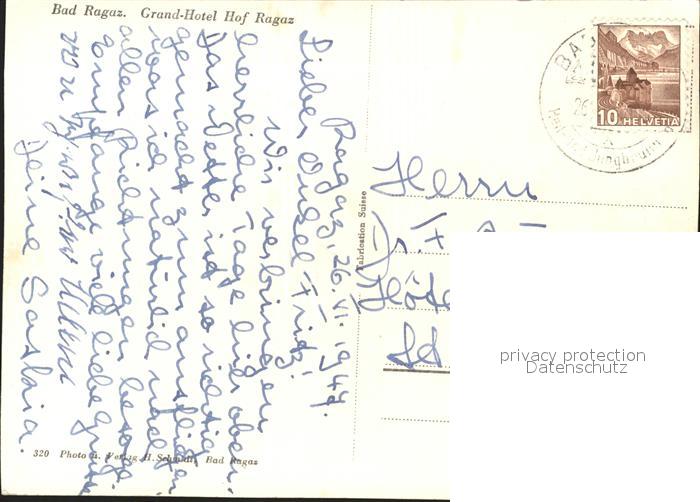 Bad Ragaz. Grand-Hotel Hof Ragaz
Ragaz, 26. VI. 1944.
Lieber Onkel Fritz!
Wir verbringen
herrliche Tage hier oben.
Das Wetter ist so richtig
gemacht zum ausfliegen
was ich natürlich nach
allen Richtungen besorge.
Empfange viele liebe Grüsse
Deine
320 Photo u. Verlag H. Schmidt, Bad Ragaz
Fabrication Suisse
Herrn
Hôte
St
BA
26
10 HELVETIA
privacy protection
Datenschutz